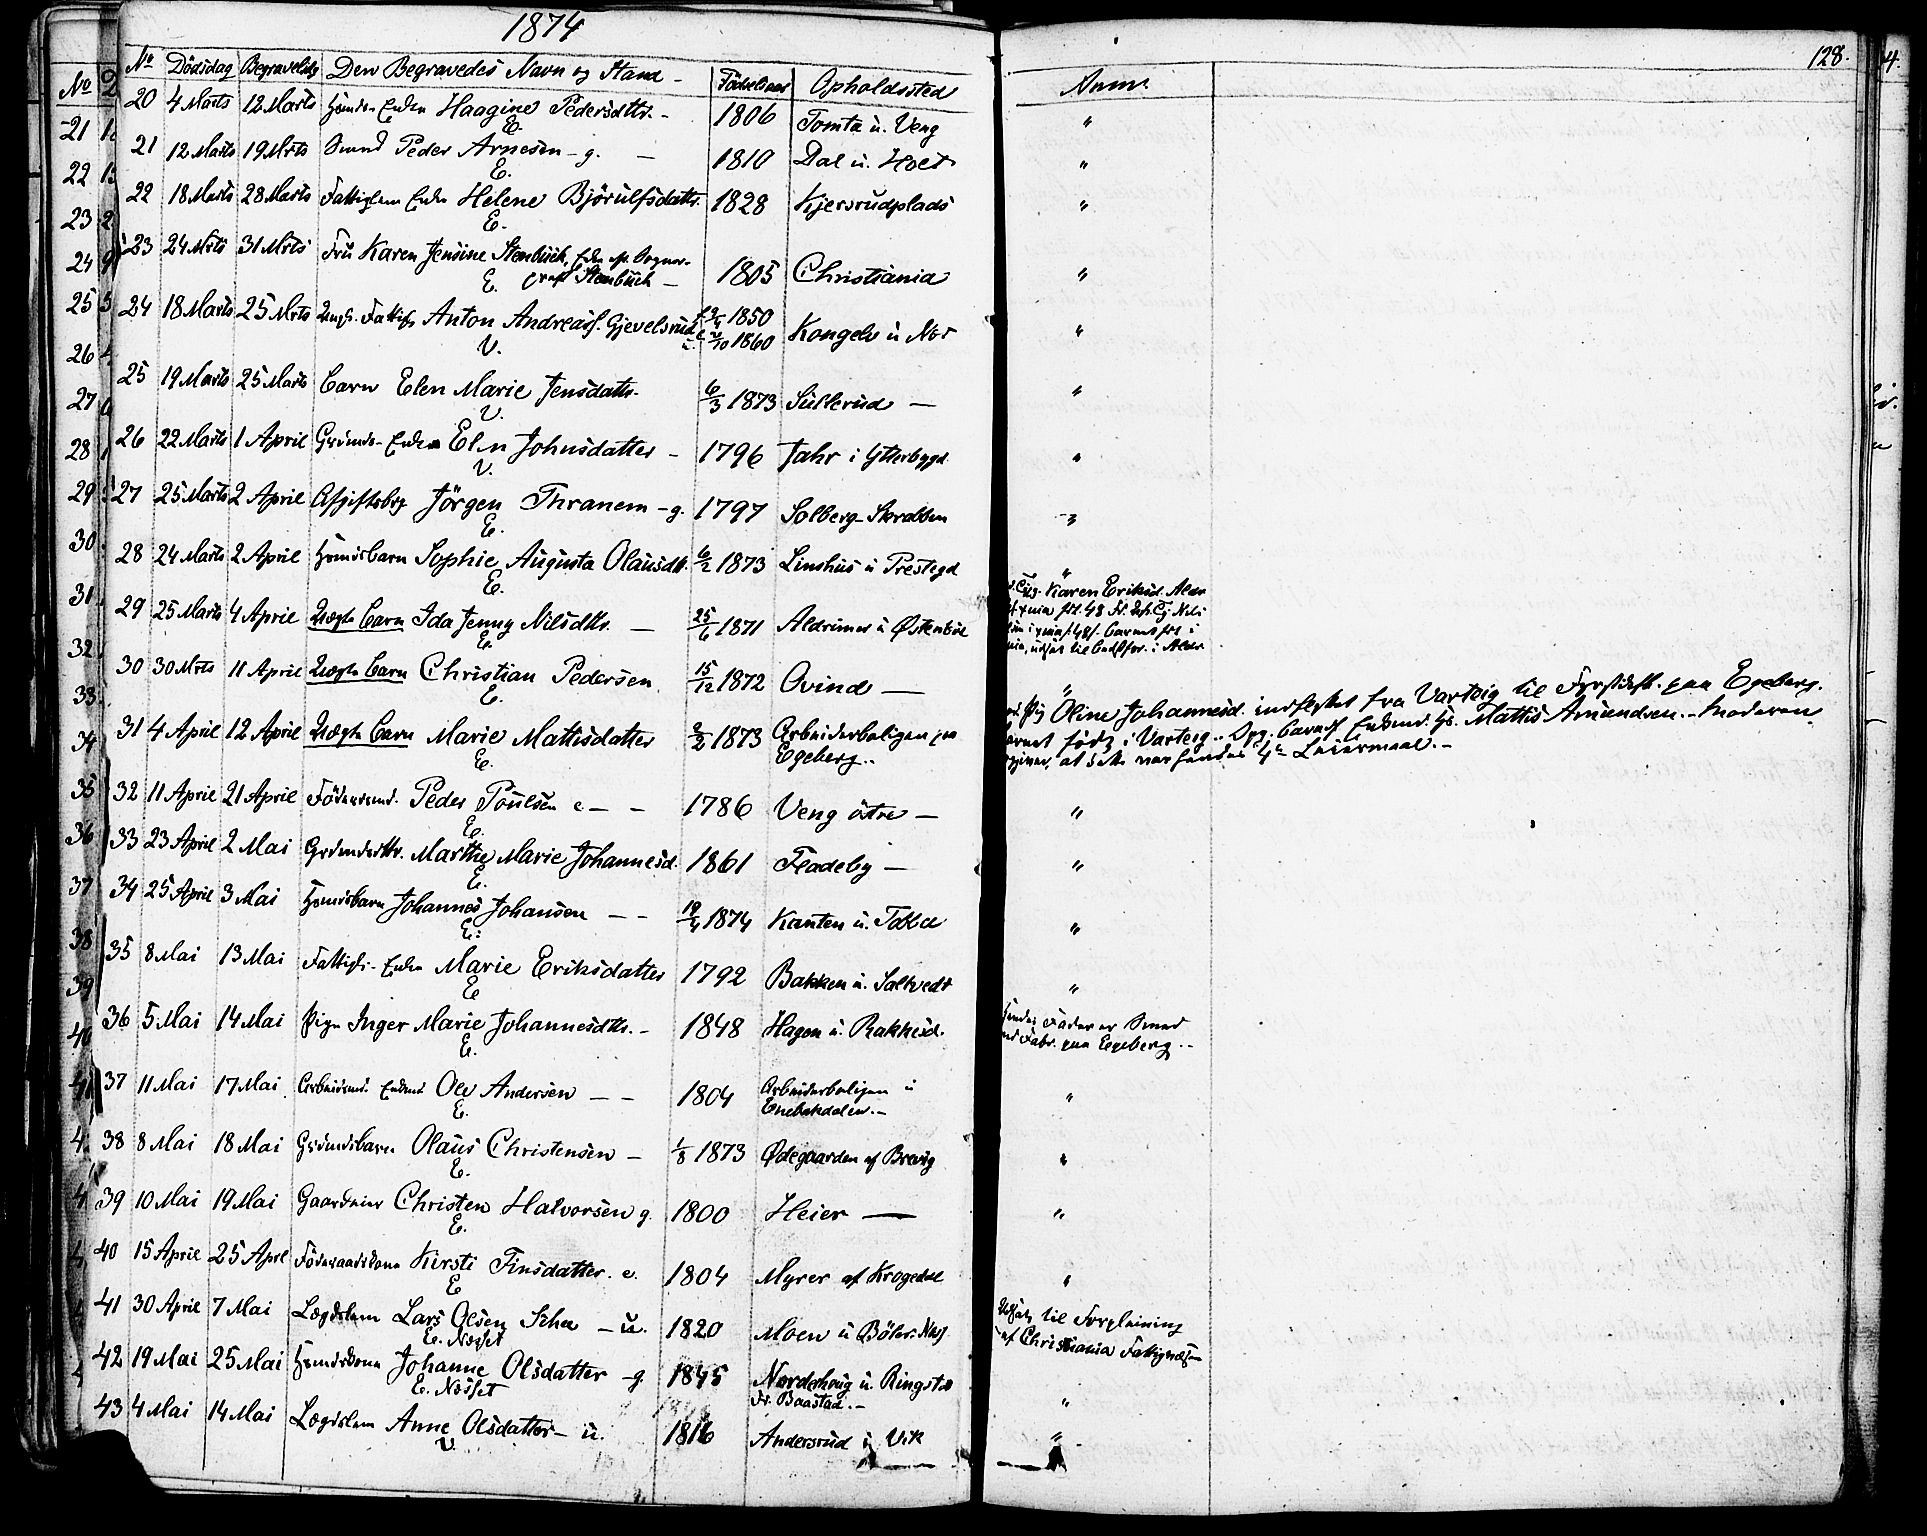 1874
128.
No Dödsdag Begravelsdg Den Begravedes Navn og Stand - Födselsaar Opholdssted Anm.
20 4 Marts 12 Marts Huusm. Enken Haagine Pedersdttr. - 1806 Tomta u. Veng "
E.
21 12 Marts 19 Mrts Smed Peder Arnesen - g. - 1810 Dal u. Holt "
E.
22 18 Marts 28 Marts Fattiglem Enke Helene Björulfsdattr. 1828 Kjersrudplads "
E.
23 24 Mrts 31 Mrts Fru Karen Jensine Stenbuch, Enke ep. Sogne-
E. præst Stenbuch - 1805 Christiania "
24 18 Marts 25 Mrts Fattigl. Anton Andreass. Gjevelsrud 1850
V. 1860 Kongelv u Nor "
25 19 Marts 25 Marts Barn Elen Marie Jensdattr. 6/3 1873 Sullerud - "
V.
26 22 Marts 1 April Grundm. Enken Elen Johnsdatter - 1796 Jahr i Ytterbygd "
V.
27 25 Marts 2 April Afgiftsbrg Jörgen Thranem - g. 1797 Solberg-Skrabben "
E.
28 24 Marts 2 April Huusm. barn Sophie Augusta Olausdtt. 6/2 1873 Linshus u Prestegd "
E.
29 25 Marts 4 April Uægte Barn Ida Jenny Nilsdttr. - 25/6 1871 Aldrimer u Østenbøl
E.
Karen Eriksd.
30 30 Mrts 11 April Uægte Barn Christian Pedersen 15/12 1872 Ovind - "
E.
31 4 April 12 April Uægte Barn Marie Mattisdatter 2/2 1873 Arbeiderboligen paa
E. Egeberg..
Pig Oline Johannesd. indflyttet fra Varteig til Fyrstikfbk. paa Egeberg.
Barnet född i Varteig.. Opg. Barnef. Enkemd. Gs. Mattis Amundsen. - Moderen
opgiver, at dette var hendes 4de Leiermaal. -
32 11 April 21 April Föderaadsmd. Peder Poulsen e - - 1786 Veng östre - "
E.
33 23 April 2 Mai Grundm.dttr. Marthe Marie Johannesd. 1861 Fladeby - "
E.
34 25 April 3 Mai Huusm.barn Johannes Johansen - - 19/4 1874 Kanten u. Tobøl "
E.
35 8 Mai 13 Mai Fattigl. Enke Marie Eriksdatter 1792 Bakken u. Saltvedt "
E
36 5 Mai 14 Mai Pige Inger Marie Johannesdttr. - 1848 Hagen u. Rakkesd.
E.
Hendes Fader er Smed
ved Fabr. paa Egeberg. -
37 11 Mai 17 Mai Arbeidsmd. Enkemd Ole Andersen - - 1804 Arbeiderboligen i "
E. Enebakdalen. -
38 8 Mai 18 Mai Grundm.barn Olaus Christensen - 1/8 1873 Ødegaarden af Brevig "
E.
39 10 Mai 19 Mai Gaardeier Christen Halvorsen g. 1800 Heier - "
E.
40 15 April 25 Aprl Föderaadskone Kirsti Finsdatter. e. 1804 Myrer af Krogedal "
E
41 30 April 7 Mai Lægdslem Lars Olsen - u. 1820 Moen u Böler. Nes.
E. Nesset
Udsat til Forpleining
af Christiania Fattigvæsen
42 19 Mai 25 Mai Huusm.kone Johanne Olsdatter - g. 1845 Norderhoug u. Ringstd
E. Nesset Fr. Baastad. - "
43 4 Mai 14 Mai Lægdslem Anne Olsdatter - u. 1816 Andersrud i Vik "
V.